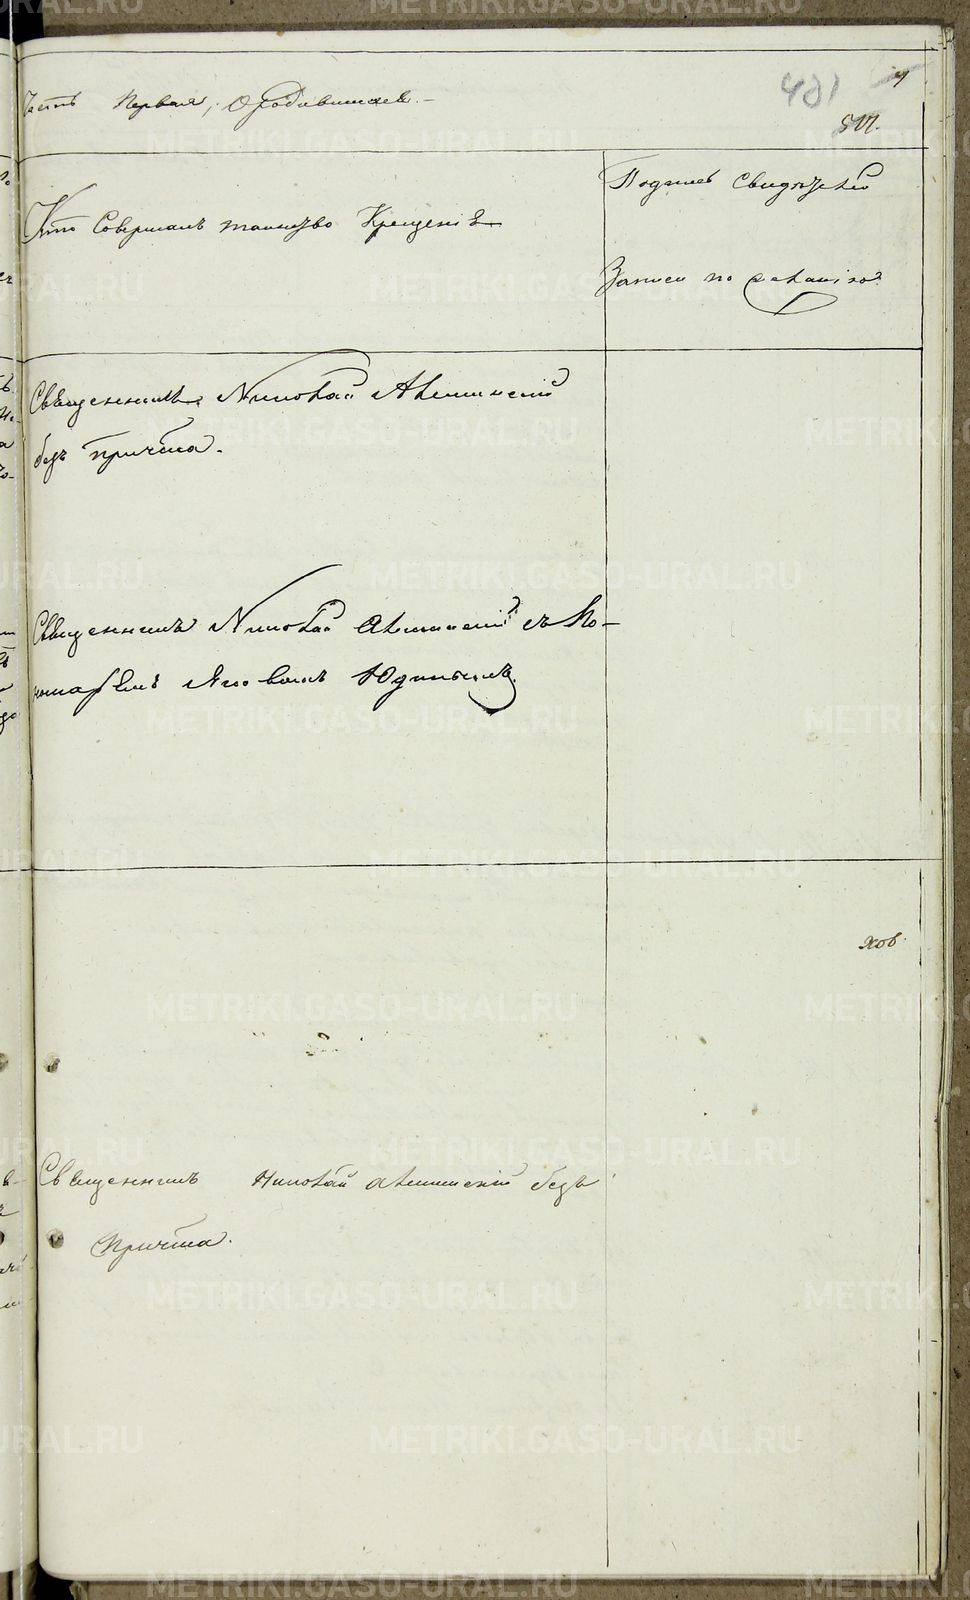 Часть Первая, О родившихся.
401
517.
Кто Совершалъ таинство Крещенія
Подпись Свидѣтелей
Записи по желанію
Священникъ Николай
безъ причта.
Священникъ Николай съ По-
номаремъ Яковомъ Юдинымъ.
хов.
Священникъ Николай безъ
Причта.
METRIKI.GASO-URAL.RU